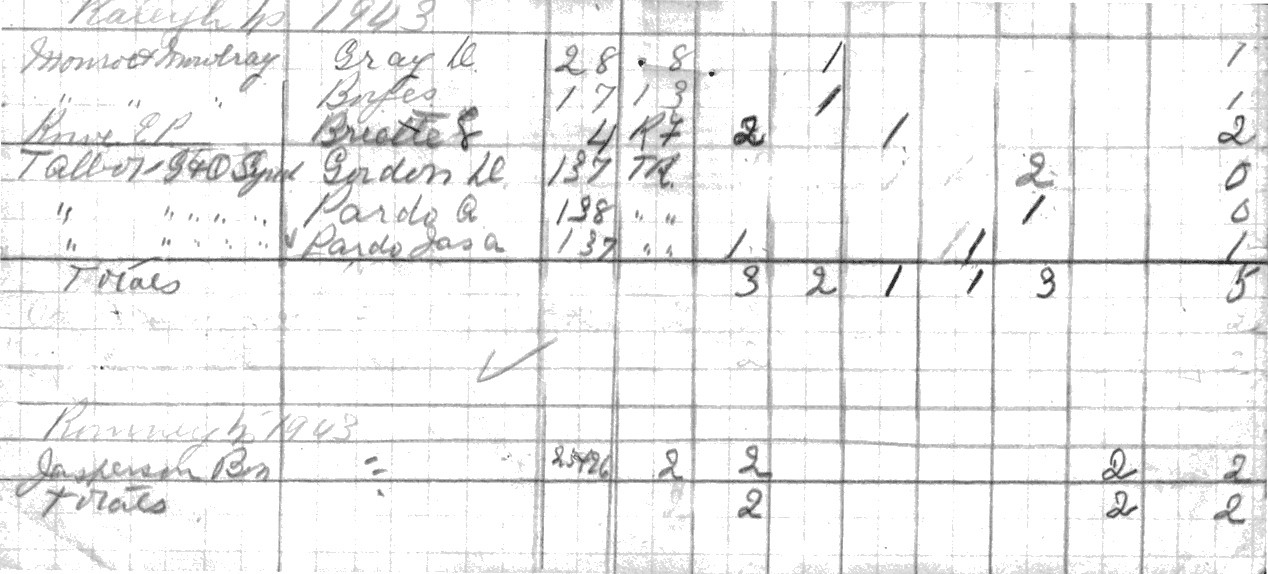 Raleigh Tp 1943
Gray W. 28 8 1 1
" " " 17 13 1 1
4 R7 2 1 2
Talbot Gordon W. 137 T.R. 2 0
" " " " " Pardo A 138 " " 1 0
" " " " " Pardo Jas A 137 " " 1 1 1
Totals 3 2 1 1 3 5
Romney Tp 1943
Jasperson Bon = 2 2 2 2
Totals 2 2 2